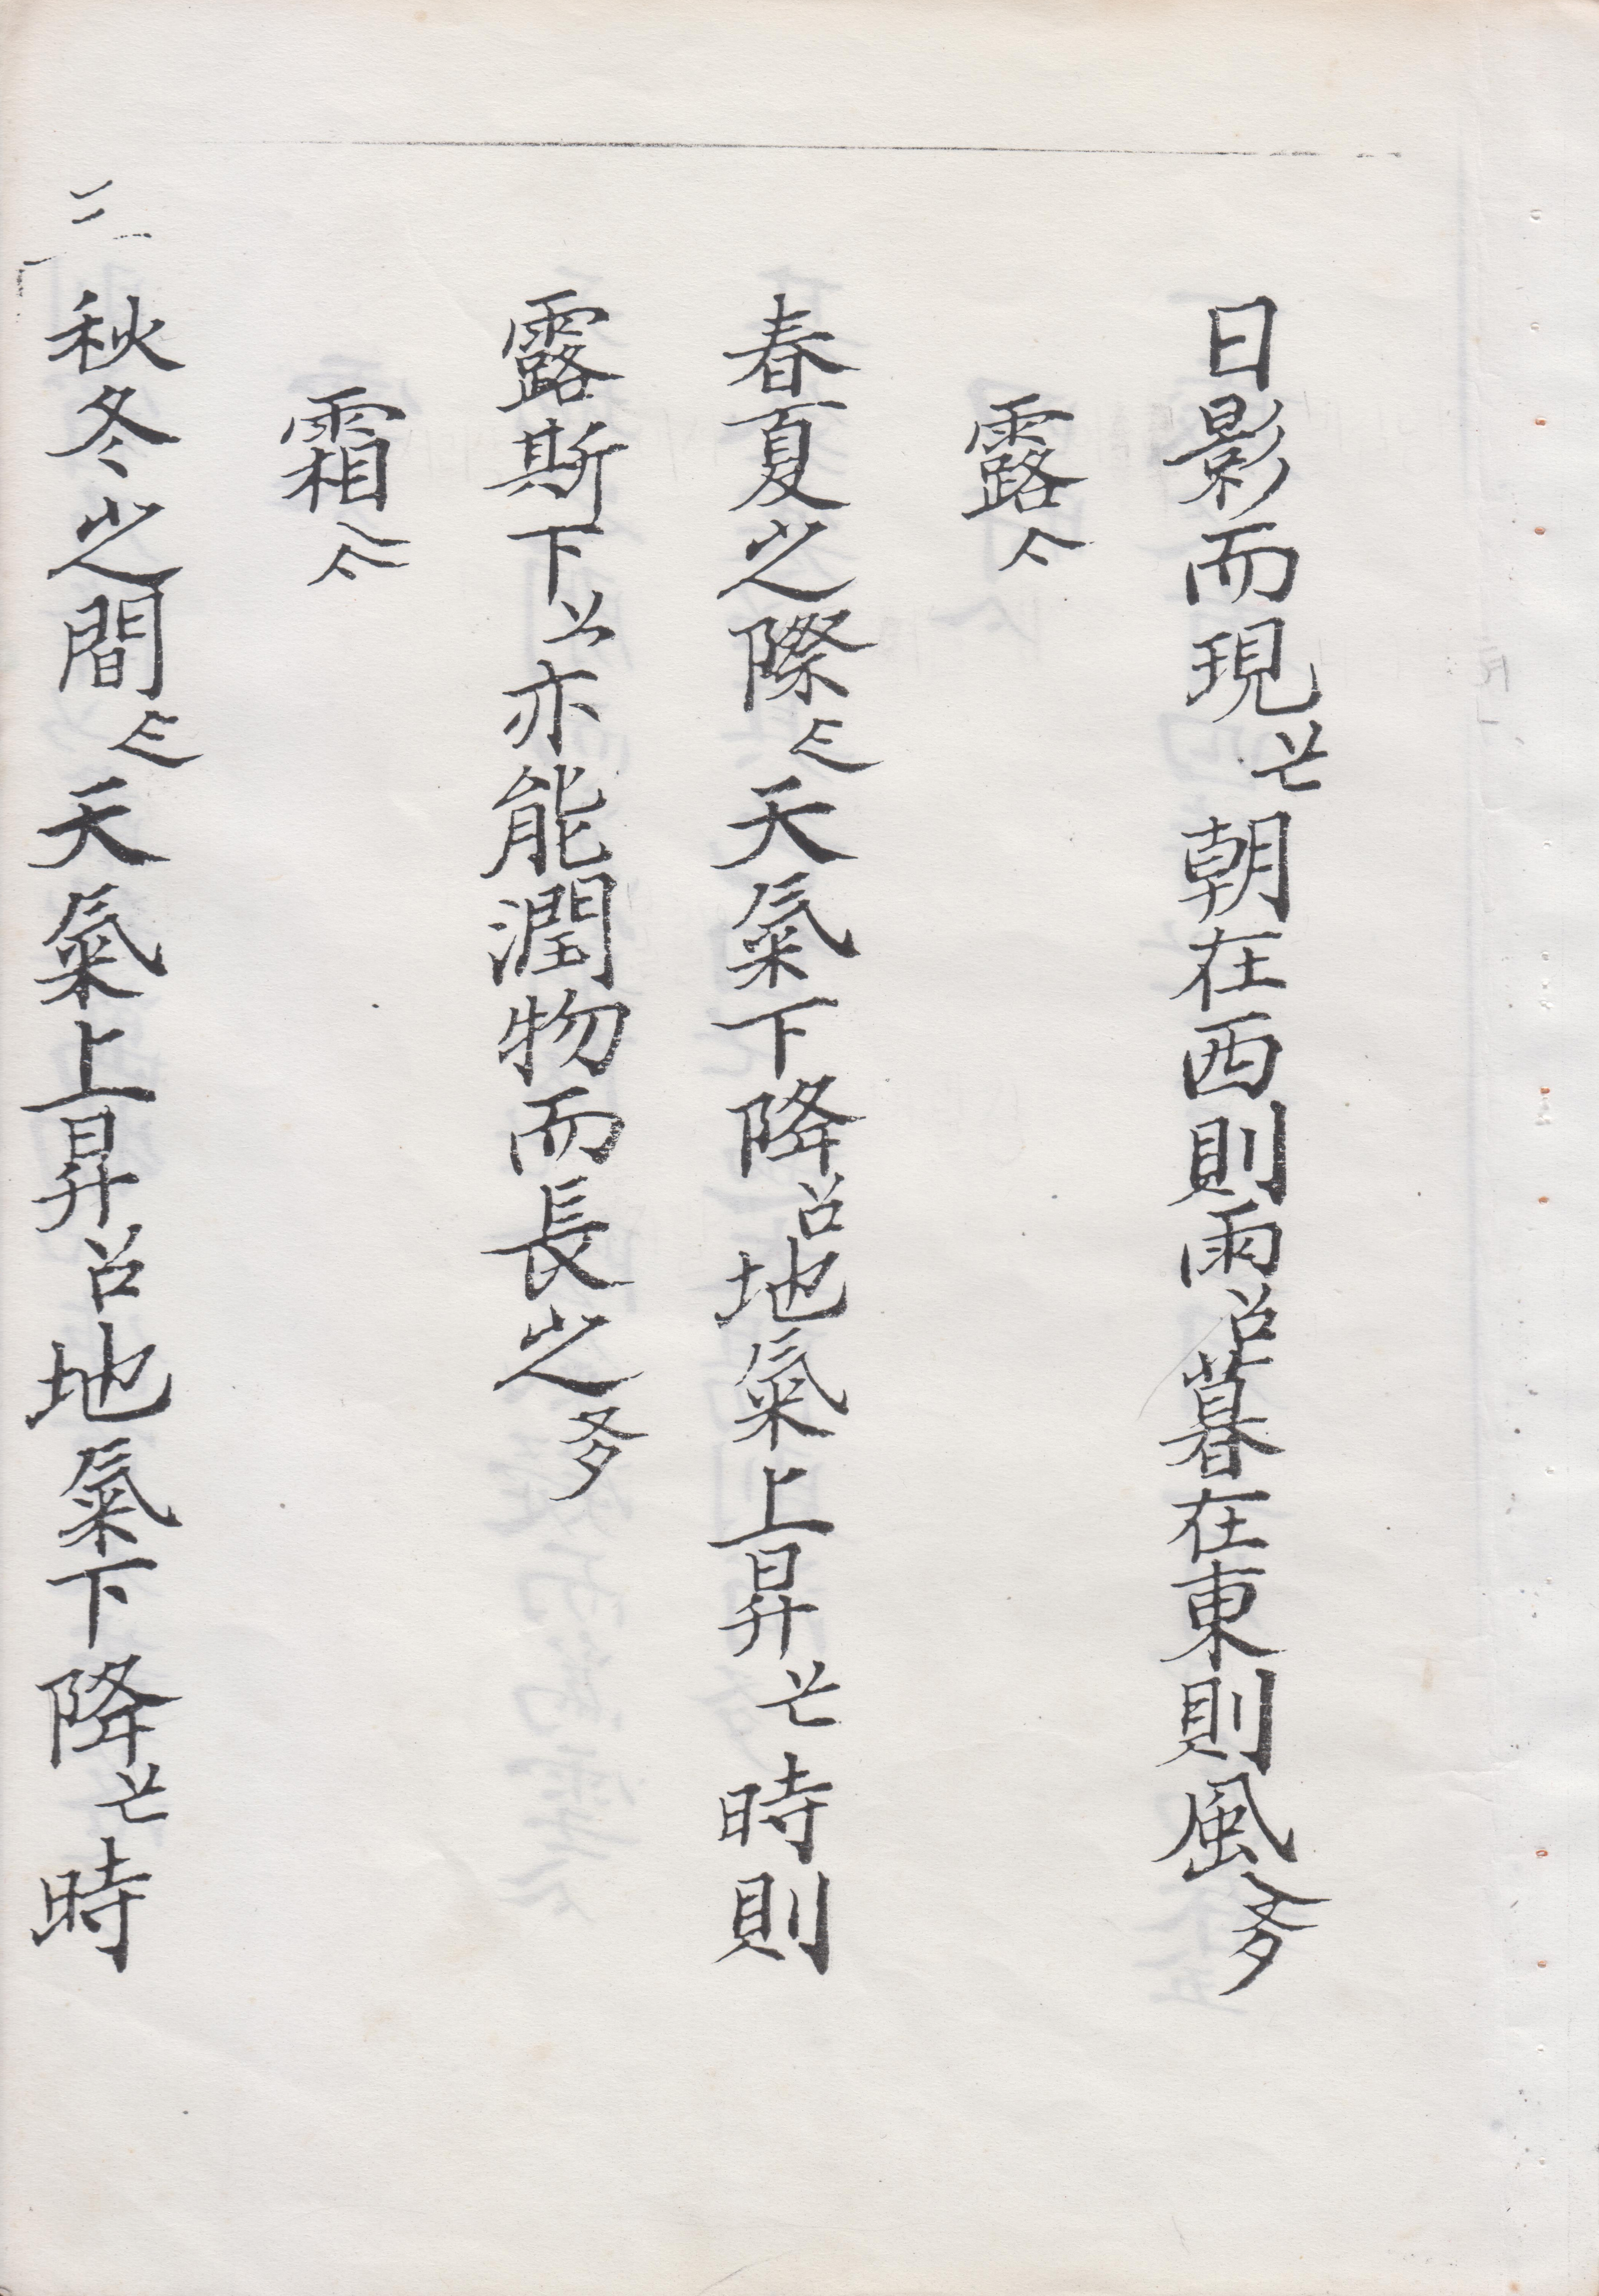 日影而現亡朝在西則雨占暮在東則風多
露亽
春夏之際乚天氣下降占地氣上昇亡時則
露斯下亦能潤物而長之多
霜亽
秋冬之間乚天氣上昇占地氣下降亡時